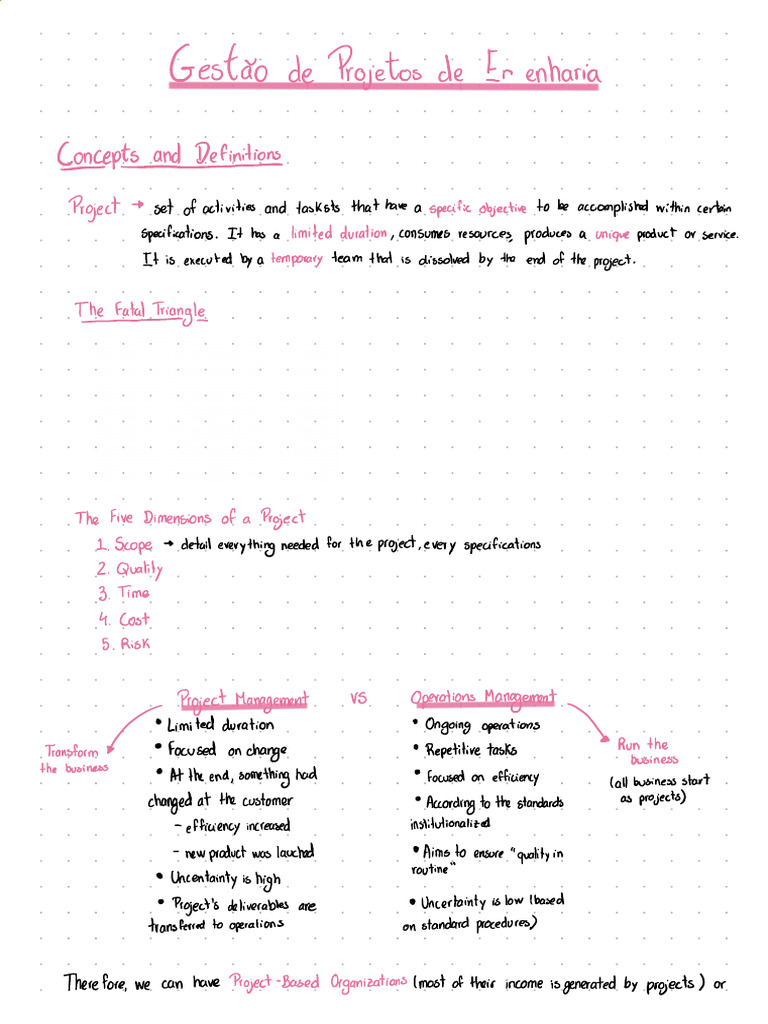 Gestão de Projetos de En enharia
Concepts and Definitions
Project → set of activities and tasksts that have a specific objective to be accomplished within certain
specifications. It has a limited duration, consumes resources, produces a unique product or service.
It is executed by a temporary team that is dissolved by the end of the project.
The Fatal Triangle
The Five Dimensions of a Project
1. Scope → detail everything needed for the project, every specifications
2. Quality
3. Time
4. Cost
5. Risk
Project Management vs Operations Management
Transform
the business
• Limited duration
• Focused on change
• At the end, something had
changed at the customer
- efficiency increased
- new product was lauched
• Uncentainty is high
• Project's deliverables are
transferred to operations
• Ongoing operations
• Repetitive tasks
• Focused on efficiency
• According to the standards
institutionalized
• Aims to ensure "quality in
routine"
• Uncertainty is low (based
on standard procedures)
Run the
business
(all business start
as projects)
Therefore, we can have Project-Based Organizations (most of their income is generated by projects) or